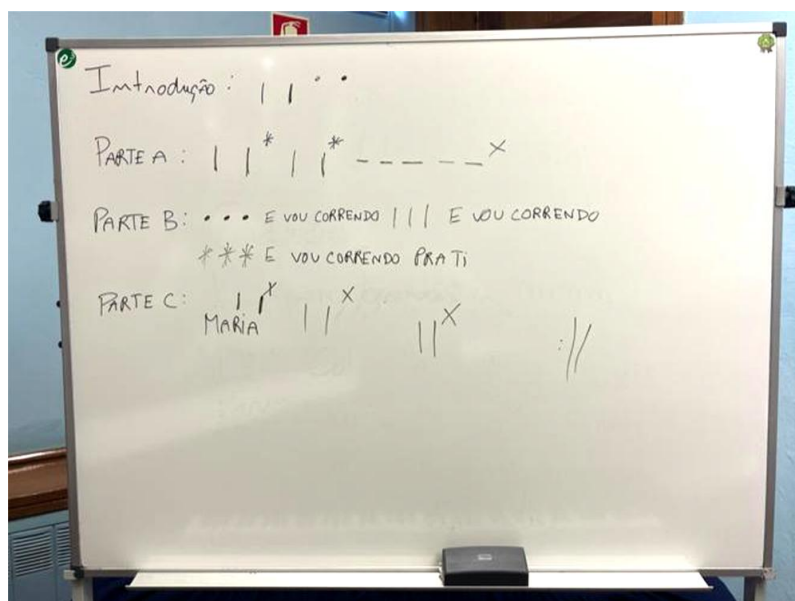 Introdução: | | • •
PARTE A: | | * | | * — — — — — — x
PARTE B: • • • E VOU CORRENDO | | | E VOU CORRENDO
* * * E VOU CORRENDO PRA TI
PARTE C: | | x | | x | | x :||
MARIA